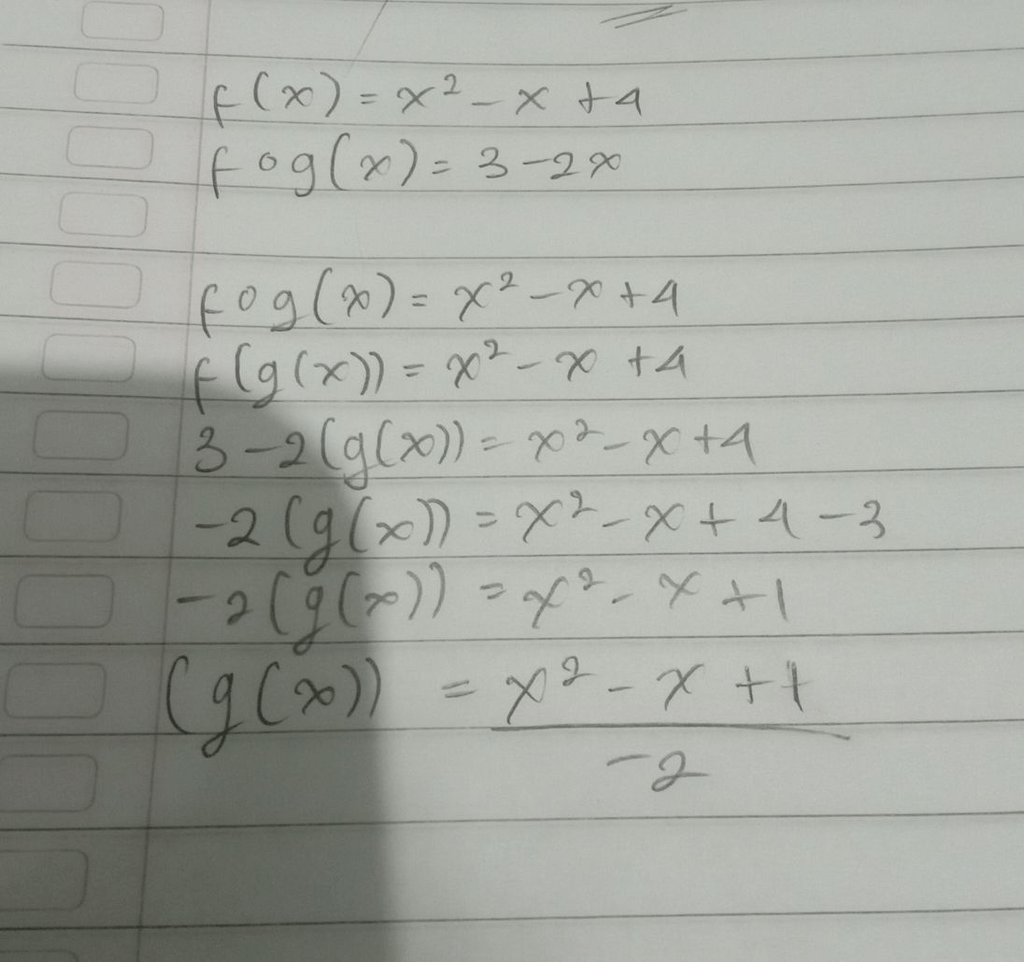 f(x) = x² - x + 4
fog(x) = 3 - 2x
fog(x) = x² - x + 4
f(g(x)) = x² - x + 4
3 - 2(g(x)) = x² - x + 4
-2(g(x)) = x² - x + 4 - 3
-2(g(x)) = x² - x + 1
(g(x)) = x² - x + 1
-2